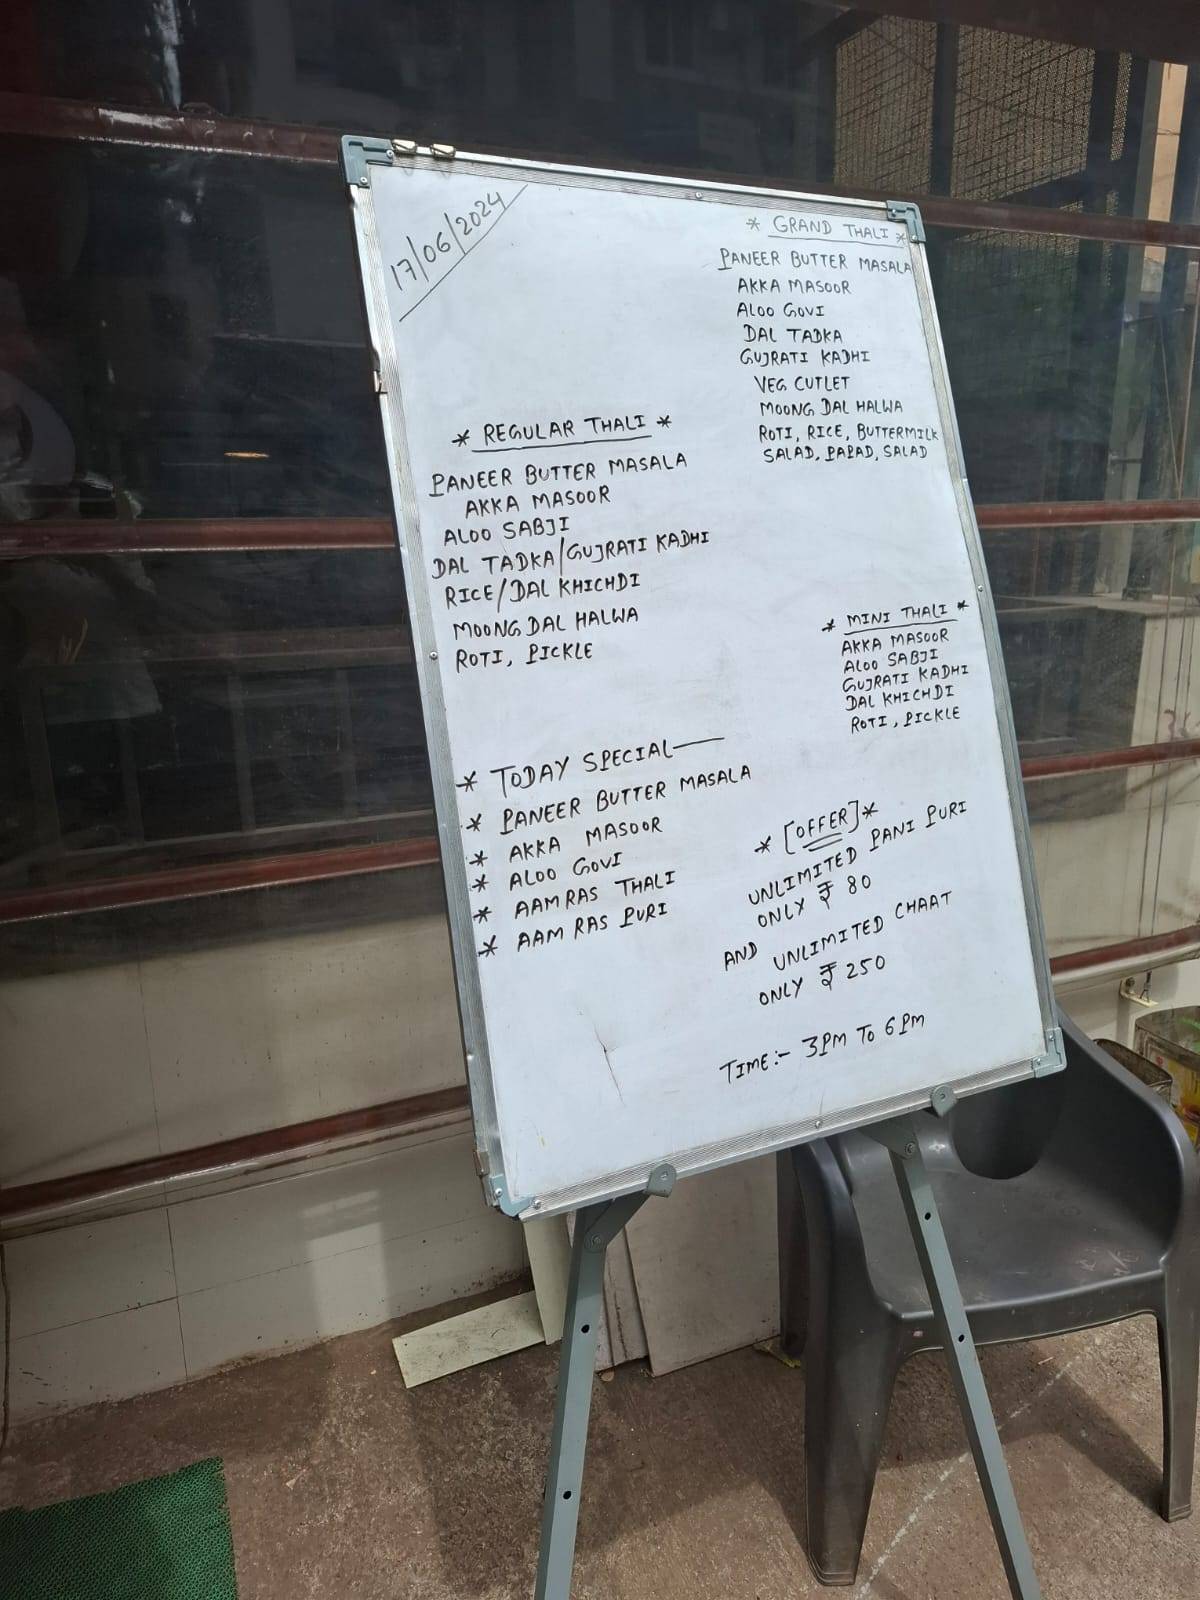 17/06/2024
* GRAND THALI *
PANEER BUTTER MASALA
AKKA MASOOR
ALOO GOVI
DAL TADKA
GUJRATI KADHI
VEG CUTLET
MOONG DAL HALWA
ROTI, RICE, BUTTERMILK
SALAD, PAPAD, SALAD
* REGULAR THALI *
PANEER BUTTER MASALA
AKKA MASOOR
ALOO SABJI
DAL TADKA/GUJRATI KADHI
RICE/DAL KHICHDI
MOONG DAL HALWA
ROTI, PICKLE
* MINI THALI *
AKKA MASOOR
ALOO SABJI
GUJRATI KADHI
DAL KHICHDI
ROTI, PICKLE
* TODAY SPECIAL—
* PANEER BUTTER MASALA
* AKKA MASOOR
* ALOO GOVI
* AAMRAS THALI
* AAM RAS PURI
* [OFFER] *
UNLIMITED PANI PURI
ONLY ₹ 80
AND UNLIMITED CHAAT
ONLY ₹ 250
TIME:- 3PM TO 6PM